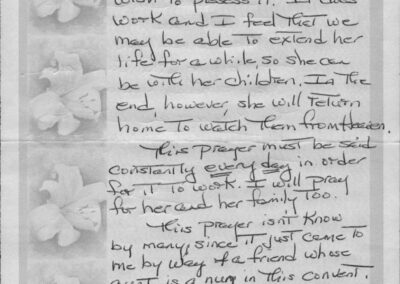 wish to possess it. It does
work and I feel that we
may be able to extend her
life for a while so she can
be with her children. In the
end, however, she will return
home to watch them from Heaven.
This prayer must be said
constantly every day in order
for it to work. I will pray
for her and her family too.
This prayer isn't know
by many, since it just came to
me by way of a friend whose
aunt is a nun in this convent.